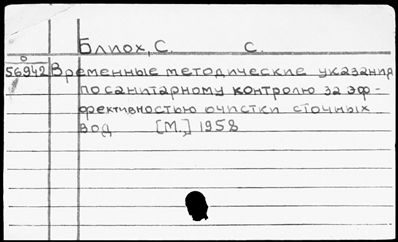 Блиох, С. С.
0
56942 Временные методические указания
по санитарному контролю за эф-
фективностью очистки сточных
вод [М.,] 1958